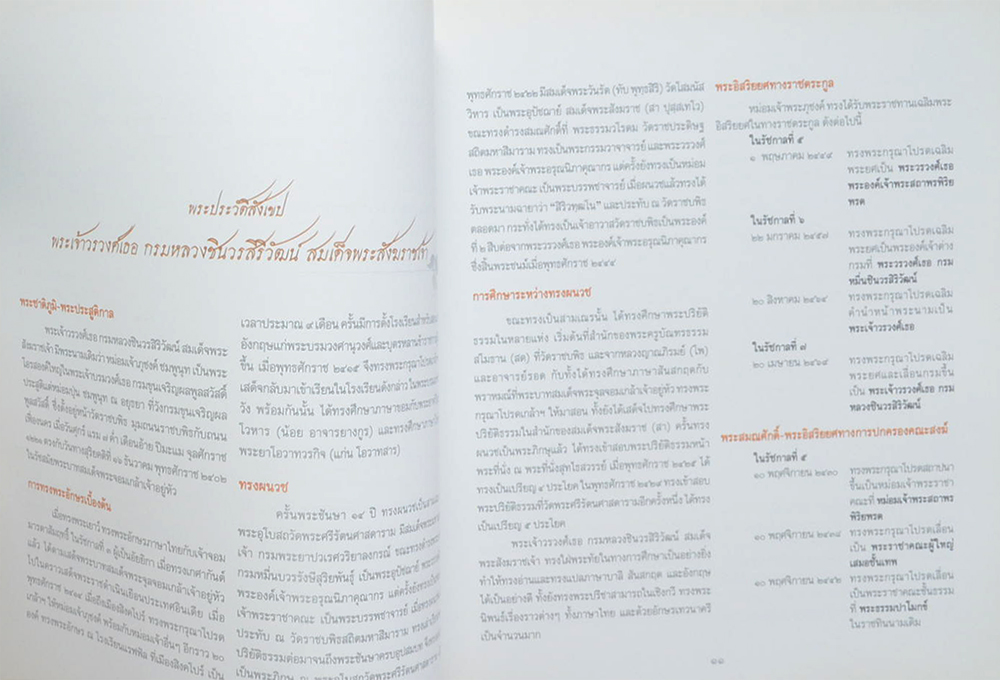 พระประวัติสังเขป
พระเจ้าวรวงศ์เธอ กรมหลวงชินวรสิริวัฒน์ สมเด็จพระสังฆราชเจ้า
พระชาติภูมิ-พระประสูติกาล
พระเจ้าวรวงศ์เธอ กรมหลวงชินวรสิริวัฒน์ สมเด็จพระ
สังฆราชเจ้า มีพระนามเดิมว่า หม่อมเจ้าภุชงค์ ชมพูนุท เป็นพระ
โอรสองค์ใหญ่ในพระเจ้าบรมวงศ์เธอ กรมขุนเจริญผลพูลสวัสดิ์
ประสูติแต่หม่อมปุ่น ชมพูนุท ณ อยุธยา ที่วังกรมขุนเจริญผล
พูลสวัสดิ์ ซึ่งตั้งอยู่หน้าวัดราชบพิธ มุมถนนราชบพิธกับถนน
เฟื่องนคร เมื่อวันศุกร์ แรม ๗ ค่ำ เดือนอ้าย ปีมะแม จุลศักราช
๑๒๒๑ ตรงกับวันทางสุริยคติที่ ๑๖ ธันวาคม พุทธศักราช ๒๔๐๒
ในรัชสมัยพระบาทสมเด็จพระจอมเกล้าเจ้าอยู่หัว
การทรงพระอักษรเบื้องต้น
เมื่อทรงพระเยาว์ ทรงพระอักษรภาษาไทยกับเจ้าจอม
มารดาสัมฤทธิ์ ในรัชกาลที่ ๓ ผู้เป็นอัยยิกา เมื่อทรงเกศากันต์
แล้ว ได้ตามเสด็จพระบาทสมเด็จพระจุลจอมเกล้าเจ้าอยู่หัว
ไปในคราวเสด็จพระราชดำเนินเยือนประเทศอินเดีย เมื่อ
พุทธศักราช ๒๔๑๔ เมื่อถึงเมืองสิงคโปร์ ทรงพระกรุณาโปรด
เกล้าฯ ให้หม่อมเจ้าภุชงค์ พร้อมกับหม่อมเจ้าอื่นๆ อีกราว ๒๐
องค์ ทรงพระอักษร ณ โรงเรียนแรฟฟิล ที่เมืองสิงคโปร์ เป็น
เวลาประมาณ ๙ เดือน ครั้นมีการตั้งโรงเรียนสำหรับสอน
อังกฤษแก่พระบรมวงศานุวงศ์และบุตรหลานข้าราชการ
ขึ้น เมื่อพุทธศักราช ๒๔๑๕ จึงทรงพระกรุณาโปรดเกล้า
เสด็จกลับมาเข้าเรียนในโรงเรียนดังกล่าว ในพระบรม
วัง พร้อมกันนั้น ได้ทรงศึกษาภาษาขอมกับพระยา
โวหาร (น้อย อาจารยางกูร) และทรงศึกษาภาษา
พระยาโอวาทวรกิจ (แก่น โอวาทสาร)
ทรงผนวช
ครั้นพระชันษา ๑๔ ปี ทรงผนวชเป็นสาม
พระอุโบสถวัดพระศรีรัตนศาสดาราม มีสมเด็จพระ
เจ้า กรมพระยาปวเรศวริยาลงกรณ์ ขณะทรงดำ
กรมหมื่นบวรรังษีสุริยพันธุ์ เป็นพระอุปัชฌาย์ พระ
พระองค์เจ้าพระอรุณนิภาคุณากร แต่ครั้งยังทรง
เจ้าพระราชาคณะ เป็นพระบรรพชาจารย์ เมื่อทรง
ประทับ ณ วัดราชบพิธสถิตมหาสีมาราม
ปริยัติธรรมต่อมาจนถึงพระชันษาครบอุปสมบท
เป็นพระภิกษุ ณ พระอุโบสถวัดพระศรีรัตนศาสดาราม
พุทธศักราช ๒๔๒๒ มีสมเด็จพระวันรัต (ทับ พุทฺธสิริ) วัดโสมนัส
วิหาร เป็นพระอุปัชฌาย์ สมเด็จพระสังฆราช (สา ปุสฺสเทโว)
ขณะทรงดำรงสมณศักดิ์ที่ พระธรรมวโรดม วัดราชประดิษฐ
สถิตมหาสีมาราม ทรงเป็นพระกรรมวาจาจารย์ และพระวรวงศ์
เธอ พระองค์เจ้าพระอรุณนิภาคุณากร แต่ครั้งยังทรงเป็นหม่อม
เจ้าพระราชาคณะ เป็นพระบรรพชาจารย์ เมื่อผนวชแล้วทรงได้
รับพระนามฉายาว่า “สิริวฑฺฒโน” และประทับ ณ วัดราชบพิธ
ตลอดมา กระทั่งได้ทรงเป็นเจ้าอาวาสวัดราชบพิธเป็นพระองค์
ที่ ๒ สืบต่อจากพระวรวงศ์เธอ พระองค์เจ้าพระอรุณนิภาคุณากร
ซึ่งสิ้นพระชนม์เมื่อพุทธศักราช ๒๔๔๔
การศึกษาระหว่างทรงผนวช
ขณะทรงเป็นสามเณรนั้น ได้ทรงศึกษาพระปริยัติ
ธรรมในหลายแห่ง เริ่มต้นที่สำนักของพระครูบัณฑรธรรม
สโมธาน (สด) ที่วัดราชบพิธ และจากหลวงญาณภิรมย์ (โพ)
และอาจารย์รอด กับทั้งได้ทรงศึกษาภาษาสันสกฤตกับ
พราหมณ์ที่พระบาทสมเด็จพระจุลจอมเกล้าเจ้าอยู่หัว ทรงพระ
กรุณาโปรดเกล้าฯ ให้มาสอน ทั้งยังได้เสด็จไปทรงศึกษาพระ
ปริยัติธรรมในสำนักของสมเด็จพระสังฆราช (สา) ครั้นทรง
ผนวชเป็นพระภิกษุแล้ว ได้ทรงเข้าสอบพระปริยัติธรรมหน้า
พระที่นั่ง ณ พระที่นั่งสุทไธสวรรย์ เมื่อพุทธศักราช ๒๔๒๕ ได้
ทรงเป็นเปรียญ ๔ ประโยค ในพุทธศักราช ๒๔๒๙ ทรงเข้าสอบ
พระปริยัติธรรมที่วัดพระศรีรัตนศาสดารามอีกครั้งหนึ่ง ได้ทรง
เป็นเปรียญ ๕ ประโยค
พระเจ้าวรวงศ์เธอ กรมหลวงชินวรสิริวัฒน์ สมเด็จ
พระสังฆราชเจ้า ทรงใฝ่พระทัยในทางการศึกษาเป็นอย่างยิ่ง
ทำให้ทรงอ่านและทรงแปลภาษาบาลี สันสกฤต และอังกฤษ
ได้เป็นอย่างดี ทั้งยังทรงพระปรีชาสามารถในเชิงกวี ทรงพระ
นิพนธ์เรื่องราวต่างๆ ทั้งภาษาไทย และด้วยอักษรเทวนาครี
เป็นจำนวนมาก
พระอิสริยยศทางราชตระกูล
หม่อมเจ้าพระภุชงค์ ทรงได้รับพระราชทานเฉลิมพระ
อิสริยยศในทางราชตระกูล ดังต่อไปนี้
ในรัชกาลที่ ๕
๑ พฤษภาคม ๒๔๔๙ ทรงพระกรุณาโปรดเฉลิม
พระยศเป็น พระวรวงศ์เธอ
พระองค์เจ้าพระสถาพรพิริย
พรต
ในรัชกาลที่ ๖
๒๒ มกราคม ๒๔๕๗ ทรงพระกรุณาโปรดเฉลิม
พระยศเป็นพระองค์เจ้าต่าง
กรมที่ พระวรวงศ์เธอ กรม
หมื่นชินวรสิริวัฒน์
๒๐ สิงหาคม ๒๔๖๔ ทรงพระกรุณาโปรดเฉลิม
คำนำหน้าพระนามเป็น
พระเจ้าวรวงศ์เธอ
ในรัชกาลที่ ๗
๒๐ เมษายน ๒๔๖๙ ทรงพระกรุณาโปรดเฉลิม
พระยศและเลื่อนกรมขึ้น
เป็น พระเจ้าวรวงศ์เธอ กรม
หลวงชินวรสิริวัฒน์
พระสมณศักดิ์-พระอิสริยยศทางการปกครองคณะสงฆ์
ในรัชกาลที่ ๕
๑๐ พฤศจิกายน ๒๔๓๐ ทรงพระกรุณาโปรดสถาปนา
ขึ้นเป็นหม่อมเจ้าพระราชา
คณะที่ หม่อมเจ้าพระสถาพร
พิริยพรต
๑๐ พฤศจิกายน ๒๔๓๘ ทรงพระกรุณาโปรดเลื่อน
เป็น พระราชาคณะผู้ใหญ่
เสมอชั้นเทพ
๑๐ พฤศจิกายน ๒๔๔๒ ทรงพระกรุณาโปรดเลื่อน
เป็นพระราชาคณะชั้นธรรม
ที่ พระธรรมปาโมกข์
ในราชทินนามเดิม
๑๑